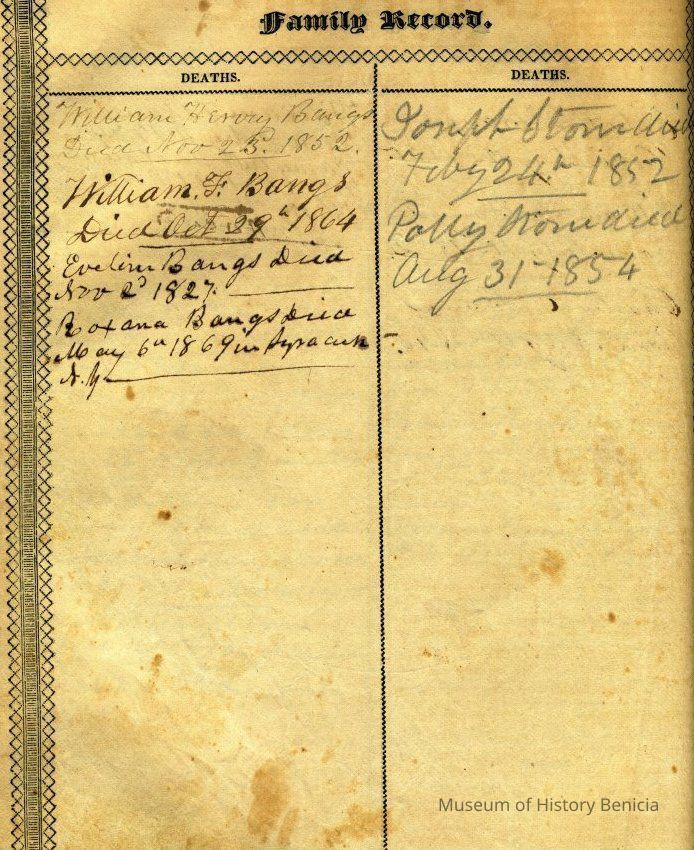 Family Record.
DEATHS.
William Hervey Bangs
Died Nov 25th 1852.
William. F. Bangs
Died Oct 29th 1864
Eveline Bangs Died
Nov 2d 1827.
Roxana Bangs Died
May 6th 1869 in Syracuse
N.Y.
DEATHS.
Joseph Stone died
Feby 24th 1852
Polly Stone died
Aug 31st 1854
Museum of History Benicia